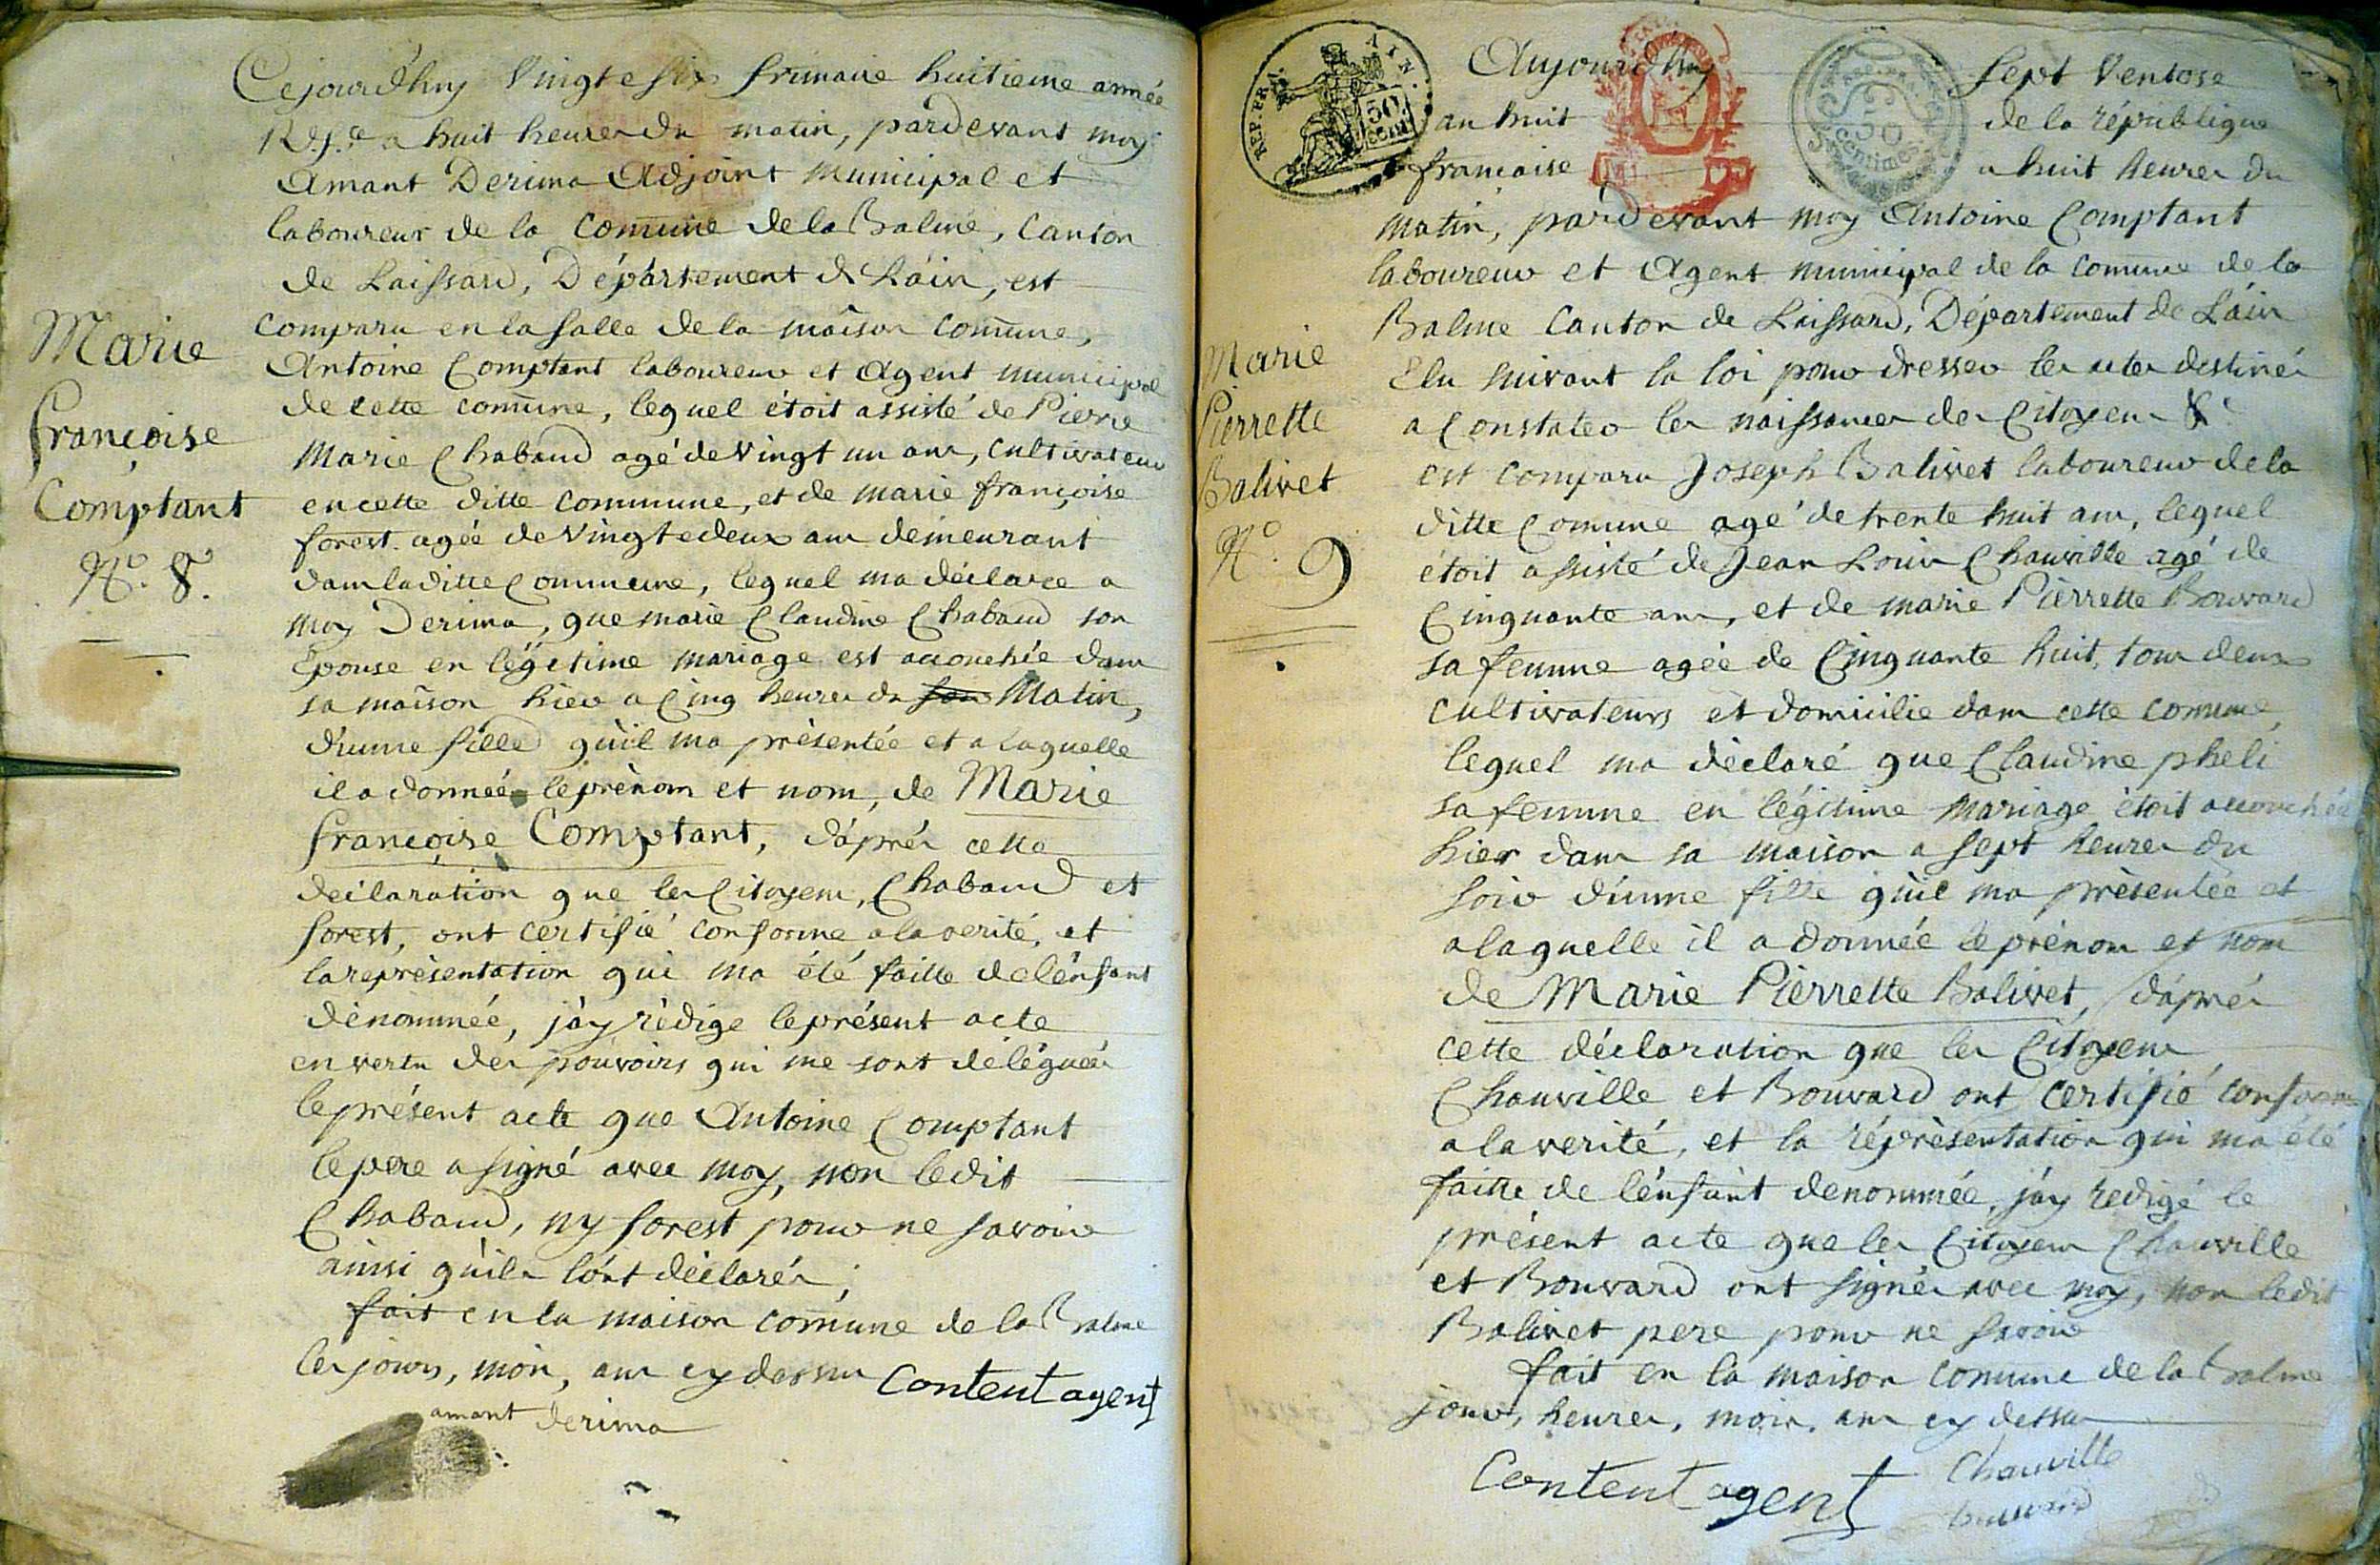 Cejourd'huy Vingte six frimaire huitieme année
R.f.se a huit heures du matin, pardevant moy
Amant Derima Adjoint municipal et
laboureur de la comune de la Balme, Canton
de Leissard, Département de L'ain, est
comparu en la salle de la maison comune,
Antoine Comptant laboureur et Agent municipal
de cette comune, lequel étoit assisté de Pierre
Marie Chabaud agé de Vingt un ans, cultivateur
en cette ditte commune, et de marie françoise
forest agée de Vingtedeux ans demeurant
dans laditte Commune, lequel ma déclaree a
moy Derima, que marie Claudine Chabaud son
Epouse en légitime mariage est accouchée dans
sa maison hier a Cinq heures du soir Matin,
d'unne fille qu'il ma présentée et a laquelle
il a donnée le prènom et nom, de Marie
françoise Comptant, d'aprés cette
déclaration que les Citoyens, Chabaud et
forest, ont certifié conforme a la verité, et
la représentation qui ma été faitte de l'énfant
dénommée, j'ày rédige le présent acte
en vertu des pouvoirs qui me sont délégués
le présent acte que Antoine Comptant
le pere a signé avec moy, non ledit
Chabaud, ny forest pour ne savoir
ainsi qu'ils l'ont déclarés;
fait en la maison comune de la Balme
les jours, mois, ans cy dessus Content agent
amant derima
Marie
françoise
Comptant
N.o 8.
REP. FRA. AIN.
50 CENT
50 Centimes
Aujourd'huy sept Ventose
an huit de la république
francaise a huit heures du
matin, pardevant moy Antoine Comptant
laboureur et Agent municipal de la comune de la
Balme Canton de Leissard, Département de L'ain
Elu suivant la loi pour dresser les actes destinés
a Constater les naissances des Citoyens &c
est comparu Joseph Balivet laboureur de la
ditte Comune agé de trente huit ans, lequel
étoit assisté de Jean Louis Chauville agé de
Cinquante ans, et de marie Pierrette Bouvard
sa femme agée de Cinquante huit, tous deux
cultivateurs et domicilie dans cette comune,
lequel ma déclaré que Claudine pheli
sa femme en légitime mariage étoit accouchée
hier dans sa maison a sept heures du
soir d'unne fille qu'il ma présentée et
a laquelle il a donnée le prénom et nom
de Marie Pierrette Balivet, d'aprés
cette déclaration que les Citoyens
Chauville et Bouvard ont certifié conforme
a la verité, et la réprèsentation qui ma été
faitte de l'énfant denommée, j'ay redigé le
présent acte que les Citoyens Chauville
et Bouvard ont signés avec moy, non ledit
Balivet pere pour ne savoir
fait en la maison comune de la Balme
jour, heures, mois, ans cy dessus
Content agent Chauville
bouvard
Marie
Pierrette
Balivet
N.o 9